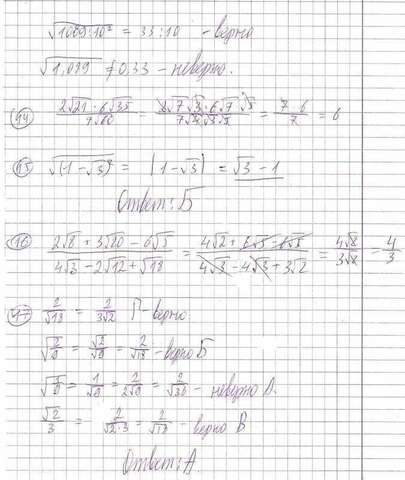 √1089:10² = 33:10 - верно
√1,099 ≠ 0,33 - неверно.
14) 2√21 · 6√35 / 7√60 = 2√7√3·6√7√5 / 7√4√3√5 = 7·6 / 7 = 6
15) √(1-√3)² = |1-√3| = √3 - 1
Ответ: Б
16) 2√8 + 3√20 - 6√5 / 4√3 - 2√12 + √18 = 4√2 + 6√5 - 6√5 / 4√3 - 4√3 + 3√2 = 4√8 / 3√2 = 4/3
17) 2/√18 = 2/3√2 Г-верно
√2/9 = √2/√9 = 2/√18 - верно Б
= 1/√9 = 2/2√9 = 2/√36 - неверно А.
√2/3 = 2/√2·3 = 2/√18 - верно В
Ответ: А